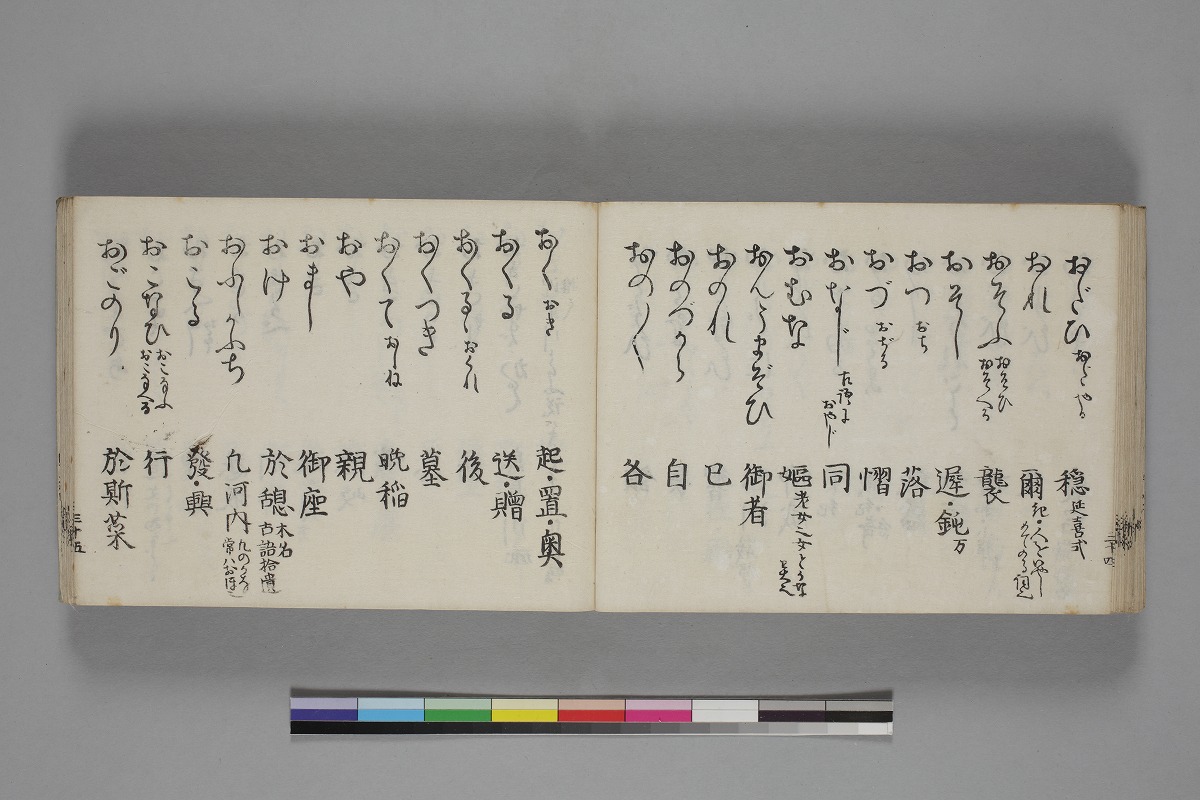 おだひ おだやか 穏 延喜式
おれ 爾 記・人をいやしめてのる詞也
おそふ おそひ おそへる 襲
おそし 遲・鈍 万
おつ おち 落
おづ おぢる 慴
おなじ 古語に おやじ 同
おむな 嫗 老女也 女とかな異也
おんうまぞひ 御者
おのれ 已
おのづから 自
おの〳〵 各
おく おき 起・置・奥
おくる 送・贈
おくるゝ おくれ 後
おくつき 墓
おくて おしね 晩稲
おや 親
おまし 御座
おけ 於𢡟 木名 古語拾遺
おふしかふち 凡河内
おこる 發・興
おこなひ おこなふ おこなへる 行
おごのり 於期菜
三十五